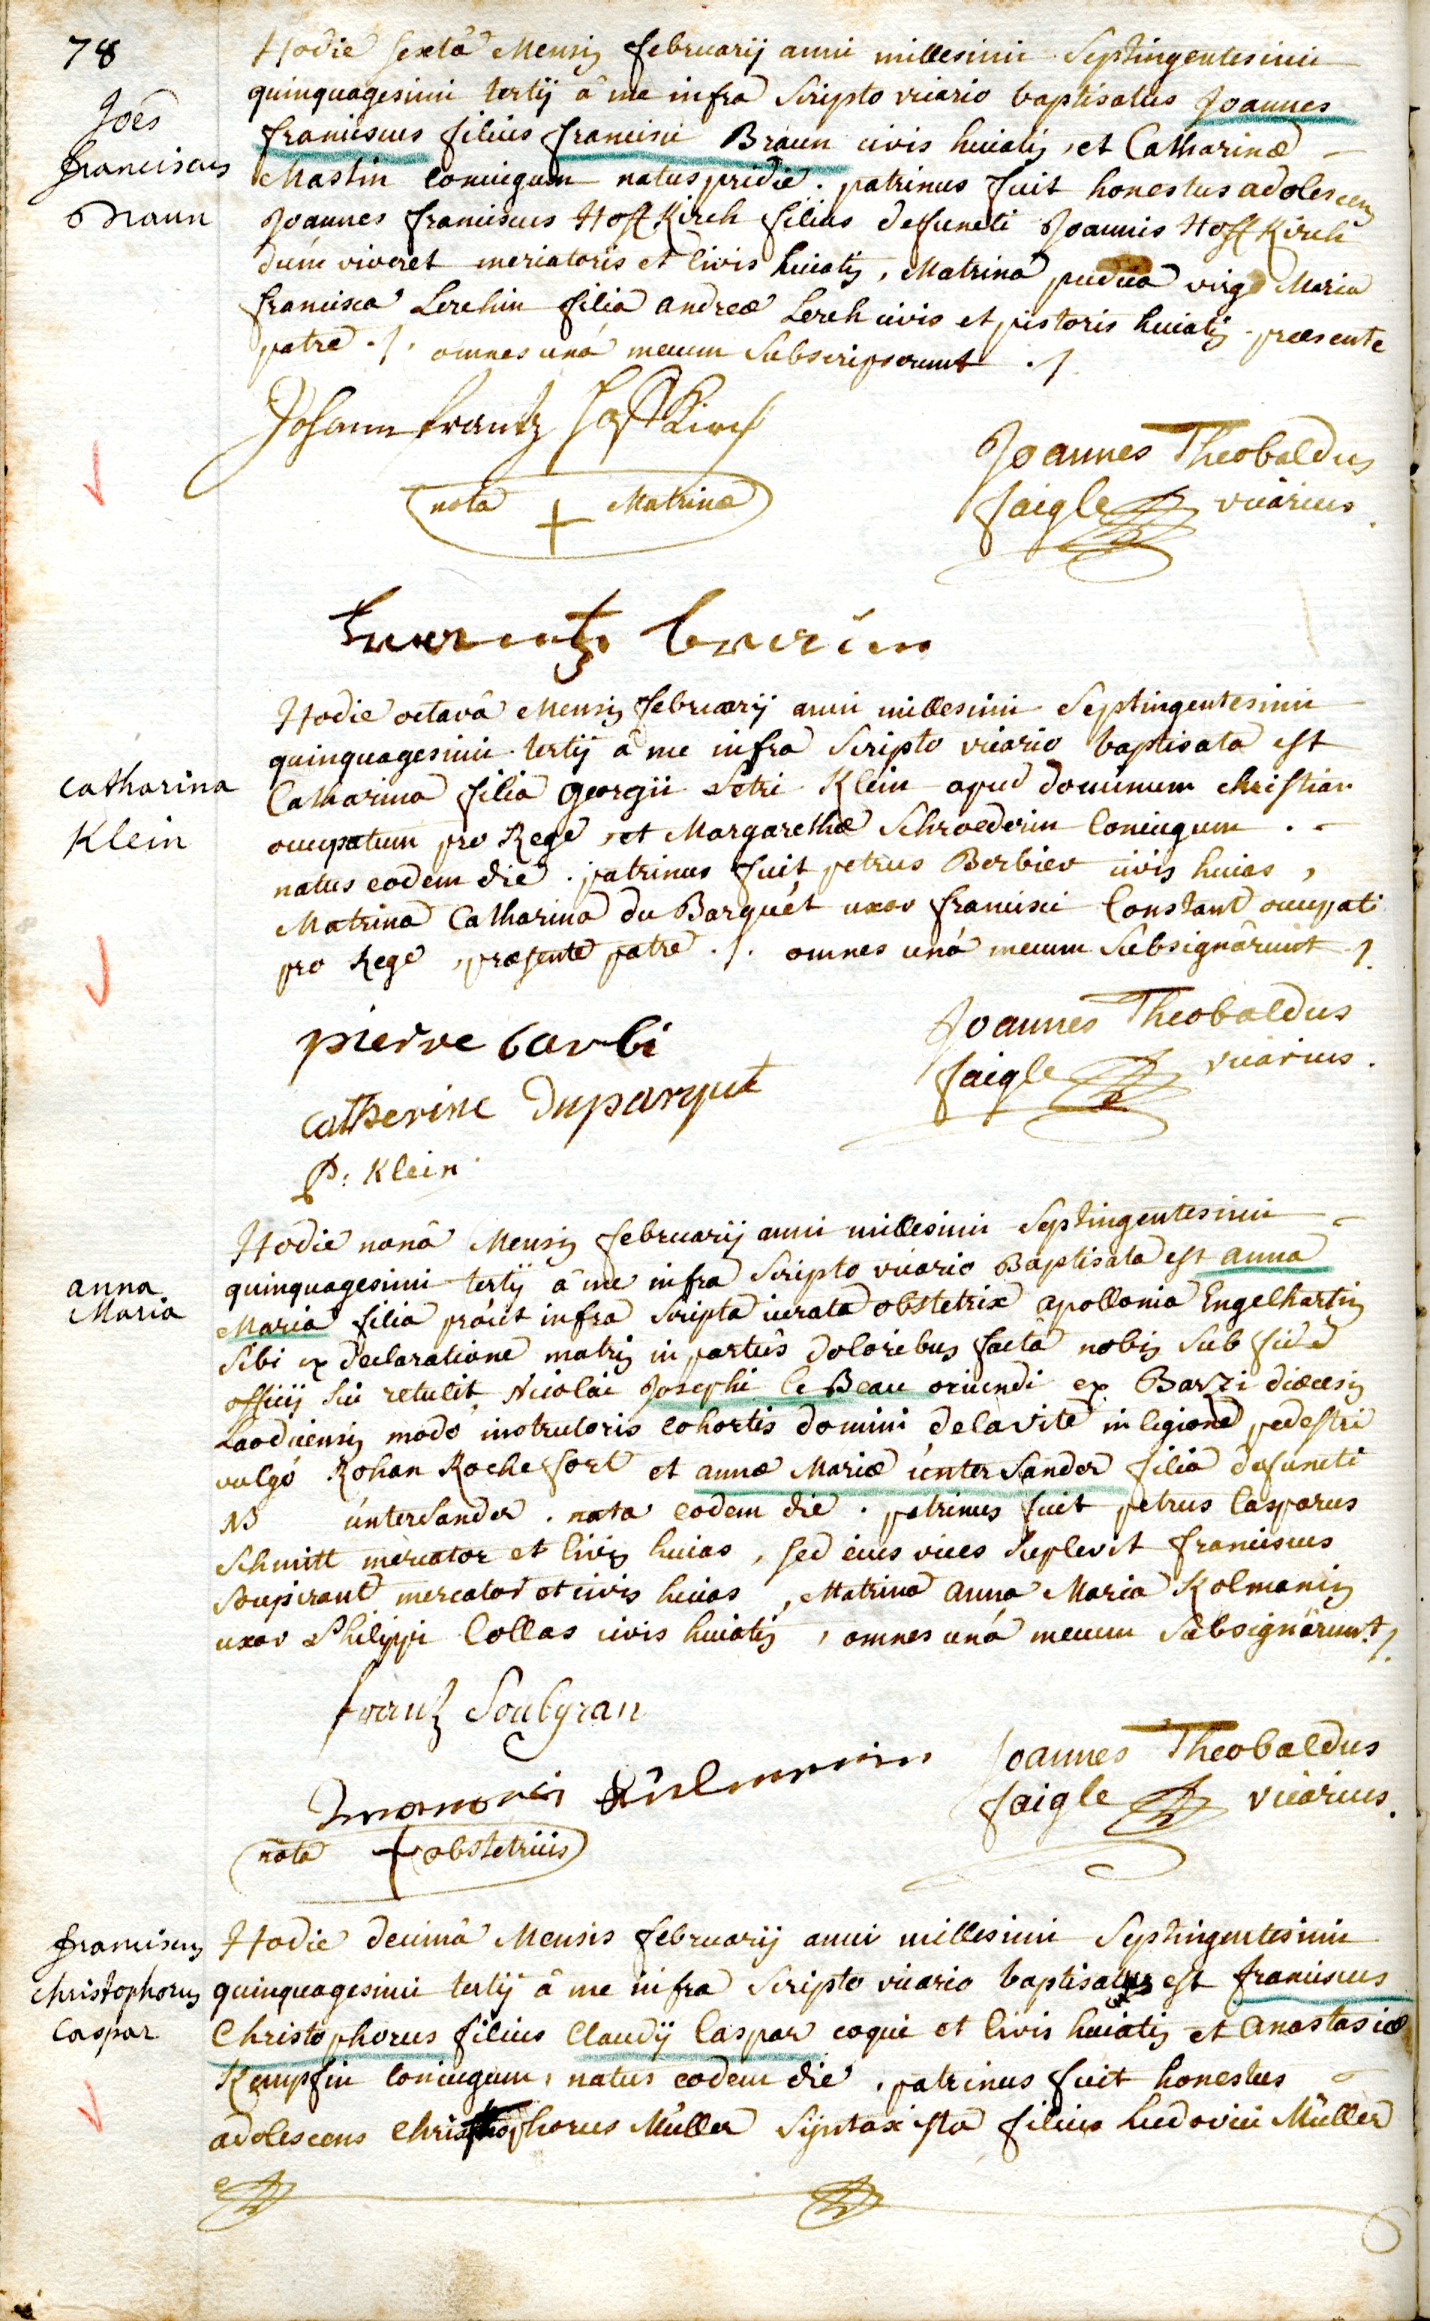 78
Joês
franciscus
Braun
Hodie sextâ Mensis februarij anni millesimi Septingentesimi
quinquagesimi tertij â me infra Scripto vicario baptisatus Joannes
franciscus filius francisci Braun civis huiatis, et Catharinæ
Mastin coniugum natus pridie. patrinus fuit honestus adolescens
Joannes franciscus Hoffkirch filius defuncti Joannis Hoffkirch
dum viveret mercatoris et Civis huiatis, Matrina pudica virgo Maria
francisca Lerchin filia andreæ Lerch civis et pistoris huiatis præsente
patre ./. omnes unâ mecum Subscripserunt ./.
Johann frantz Hoffkirch
nota + Matrinæ
Joannes Theobaldus
faigle vicarius.
frantz
catharina
Klein
Hodie octavâ Mensis februarij anni millesimi Septingentesimi
quinquagesimi tertij â me infra Scripto vicario baptisata est
Catharina filia georgii Petri Klein apud dominum christian
occupatum pro Rege, et Margarethæ Schroederin Coniugum . -
natus eodem die. patrinus fuit petrus Berbier civis huias,
Matrina Catharina du Barquét uxor francisci Constant occupati
pro Rege, præsente patre ./. omnes unâ mecum Subsignârunt ./.
pierre barbi
catherine duparquet
P: Klein
Joannes Theobaldus
faigle vicarius.
anna
Maria
Hodie nonâ Mensis februarij anni millesimi Septingentesimi
quinquagesimi tertij â me infra Scripto vicario Baptisata est anna
Maria filia proút infra Scripta iurata obstetrix apollonia Engelhartin
Sibi ex declaratione matris in partûs doloribus factâ nobis Sub fide
officij Sui retulit, Nicolai Josephi le Beau oriundi ex Barzi diœcesis
Laodicensis modò instructoris cohortis domini delavite in legione pedestri
vulgó Rohan Rochefort et annæ Mariæ únter Sander filia defuncti
N untersander. nata eodem die. patrinus fuit petrus Casparus
Schmitt mercator et Civis huias, Sed eius vices Suplevit franciscus
Soupirant mercator et civis huias, Matrina anna Maria Kolmanin
uxor Philippi Collas civis huiatis, omnes unâ mecum Subsignârunt ./.
frantz Soubyran
nota + obstetricis
Joannes Theobaldus
faigle vicarius.
franciscus
christophorus
Caspar
Hodie decimâ Mensis februarij anni millesimi Septingentesimi
quinquagesimi tertij â me infra Scripto vicario baptisatus est franciscus
Christophorus filius Claudij Caspar coqui et Civis huiatis et anastasiæ
Kempfin Coniugum, natus eodem die. patrinus fuit honestus
adolescens christophorus Müller Syntaxista filius Ludovici Müller